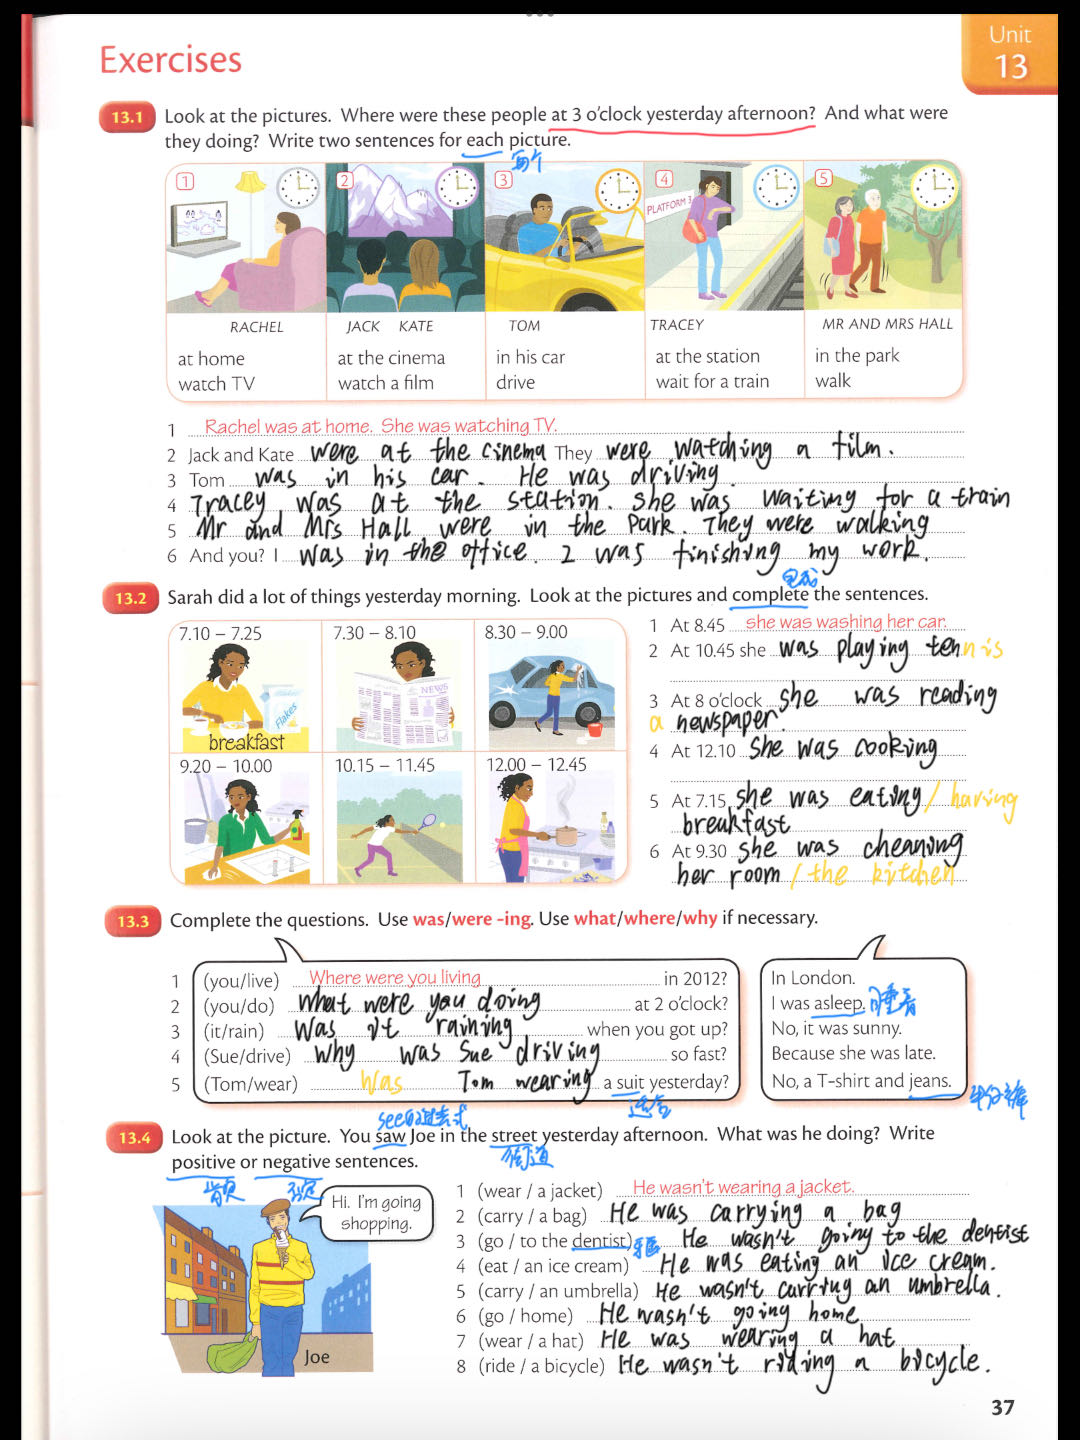 Exercises
Unit
13
13.1 Look at the pictures. Where were these people at 3 o'clock yesterday afternoon? And what were
they doing? Write two sentences for each picture.
每个
1 2 3 4 5
PLATFORM 3
RACHEL JACK KATE TOM TRACEY MR AND MRS HALL
at home at the cinema in his car at the station in the park
watch TV watch a film drive wait for a train walk
1 Rachel was at home. She was watching TV.
2 Jack and Kate were at the cinema They were watching a film.
3 Tom was in his car. He was driving.
4 Tracey was at the station. she was waiting for a train
5 Mr and Mrs Hall were in the park. They were walking
6 And you? I was in the office. I was finishing my work.
完成
13.2 Sarah did a lot of things yesterday morning. Look at the pictures and complete the sentences.
7.10 – 7.25 7.30 – 8.10 8.30 – 9.00
NEWS
Flakes
breakfast
9.20 – 10.00 10.15 – 11.45 12.00 – 12.45
1 At 8.45 she was washing her car.
2 At 10.45 she was playing tennis
3 At 8 o'clock she was reading
a newspaper.
4 At 12.10 she was cooking
5 At 7.15 she was eating / having
breakfast
6 At 9.30 she was cheaning
her room / the kitchen
13.3 Complete the questions. Use was/were -ing. Use what/where/why if necessary.
1 (you/live) Where were you living in 2012? In London.
2 (you/do) what were you doing at 2 o'clock? I was asleep. 睡着
3 (it/rain) Was it raining when you got up? No, it was sunny.
4 (Sue/drive) why was Sue driving so fast? Because she was late.
5 (Tom/wear) Was Tom wearing a suit yesterday? No, a T-shirt and jeans.
牛仔裤
see的过去式
套
13.4 Look at the picture. You saw Joe in the street yesterday afternoon. What was he doing? Write
街道
positive or negative sentences.
Hi. I'm going
shopping.
Joe
1 (wear / a jacket) He wasn't wearing a jacket.
2 (carry / a bag) He was carrying a bag
3 (go / to the dentist) 牙医 He wasn't going to the dentist
4 (eat / an ice cream) He was eating an ice cream.
5 (carry / an umbrella) He wasn't carrying an umbrella.
6 (go / home) He wasn't going home
7 (wear / a hat) He was wearing a hat
8 (ride / a bicycle) He wasn't riding a bicycle.
37